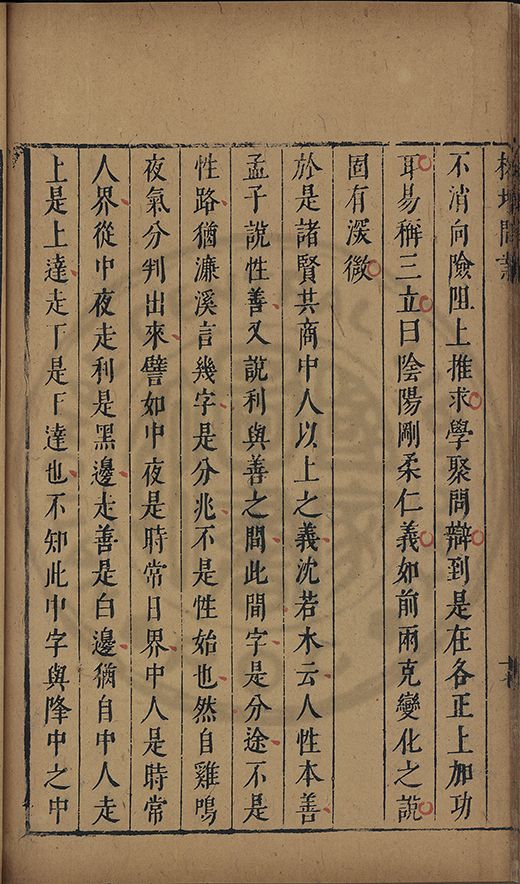 榕壇問業
不消向險阻上推求學聚問辯到是在各正上加功
耳易稱三立曰陰陽剛柔仁義如前兩克變化之說
固有深徵
於是諸賢共商中人以上之義沈若水云人性本善
孟子說性善又說利與善之間此間字是分途不是
性路猶濂溪言幾字是分兆不是性始也然自雞鳴
夜氣分判出來譬如中夜是時常日界中人是時常
人界從中夜走利是黑邊走善是白邊猶自中人走
上是上達走下是下達也不知此中字與降中之中